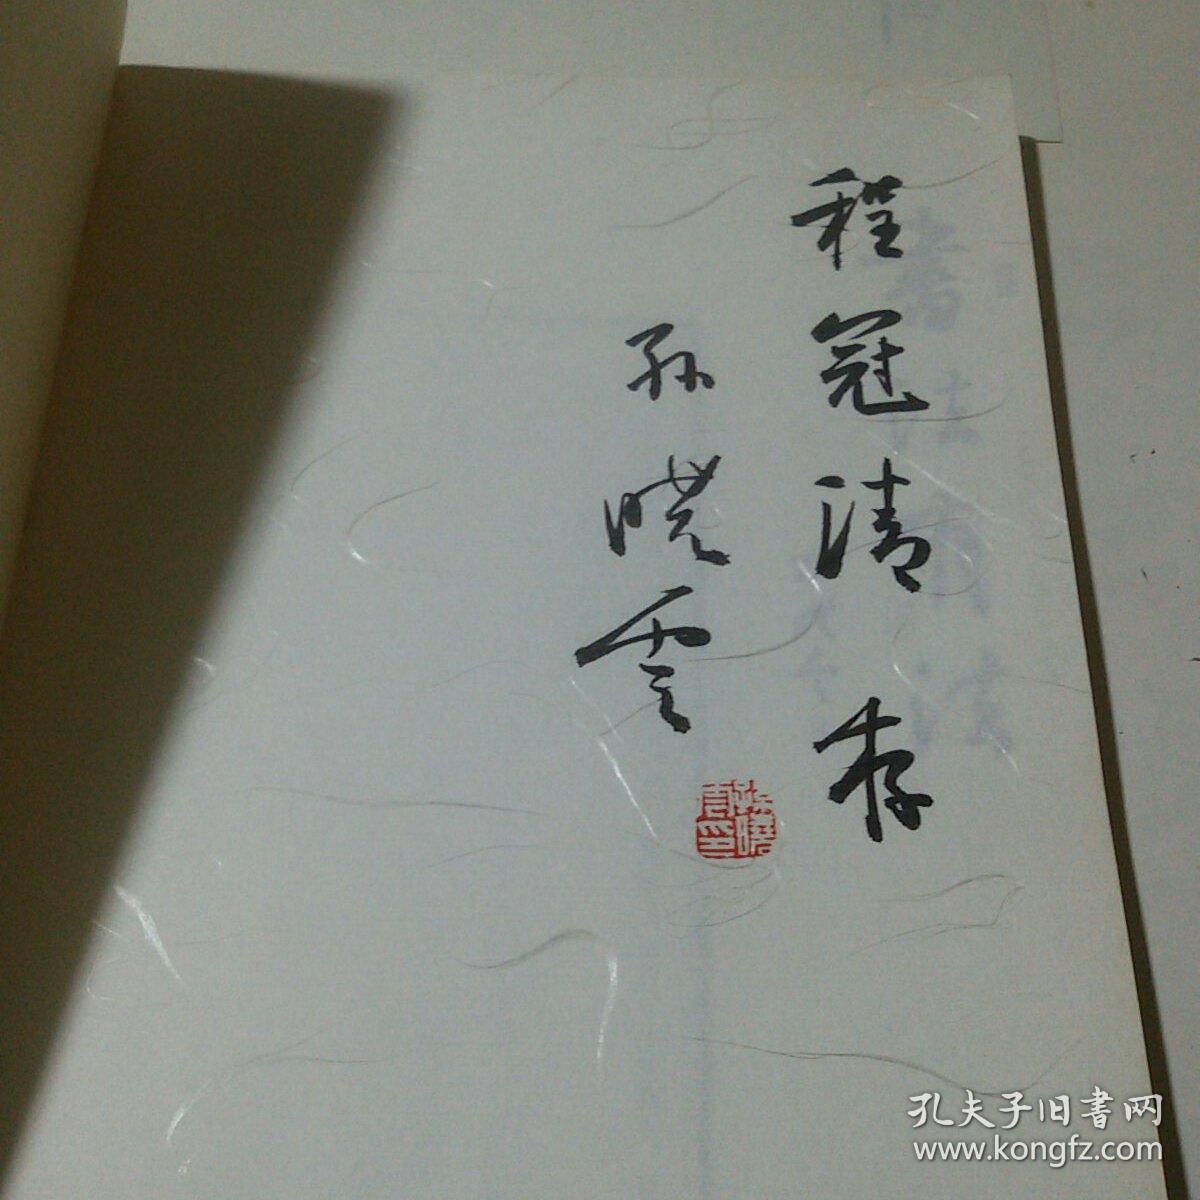 程冠清存
孙晓云
孙晓云印
孔夫子旧書网
www.kongfz.com